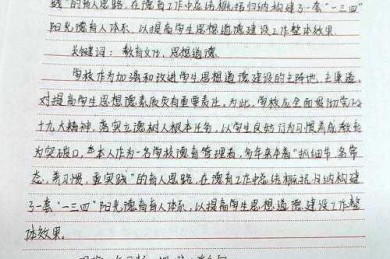 线"的育人思路,在德育工作中总结概括归纳构建了一套"一三四"
阳光德育育人体系,以提高学生思想道德建设工作整体效果。
关键词:教育文化,思想道德
学校作为加强和改进学生思想道德建设的主阵地、主渠道,
对提高学生思想道德素质负有重要责任。为此,学校应全面贯彻党的
十九大精神,落实立德树人根本任务,以学生良好行为习惯养成教育
为突破口,本人作为一名学校德育管理者,多年来本着"抓细节、务常
态、养习惯、重实践"的育人思路,在德育工作中总结概括归纳构建
了一套"一三四"阳光德育育人体系,以提高学生思想道德建设工作整
体效果。